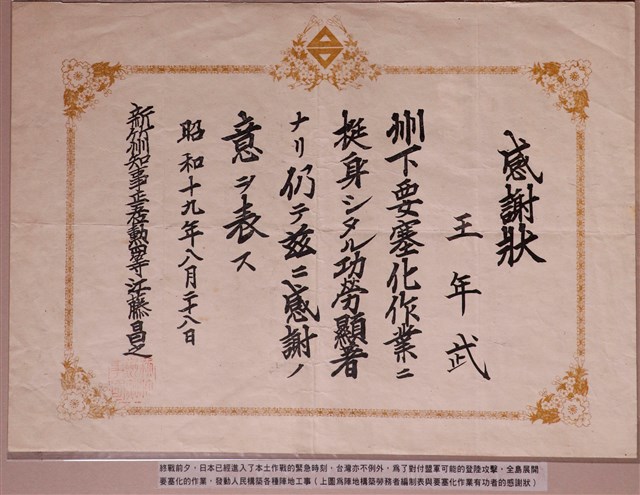 感謝狀
王年武
州下要塞化作業ニ
挺身シタル功勞顯著
ナリ仍テ茲ニ感謝ノ
意ヲ表ス
昭和十九年八月二十八日
新竹州知事正五位勳四等江藤昌之
終戰前夕，日本已經進入了本土作戰的緊急時刻，台灣亦不例外，爲了對付盟軍可能的登陸攻擊，全島展開
要塞化的作業，發動人民構築各種陣地工事（上圖爲陣地構築勞務者編制表與要塞化作業有功者的感謝狀）